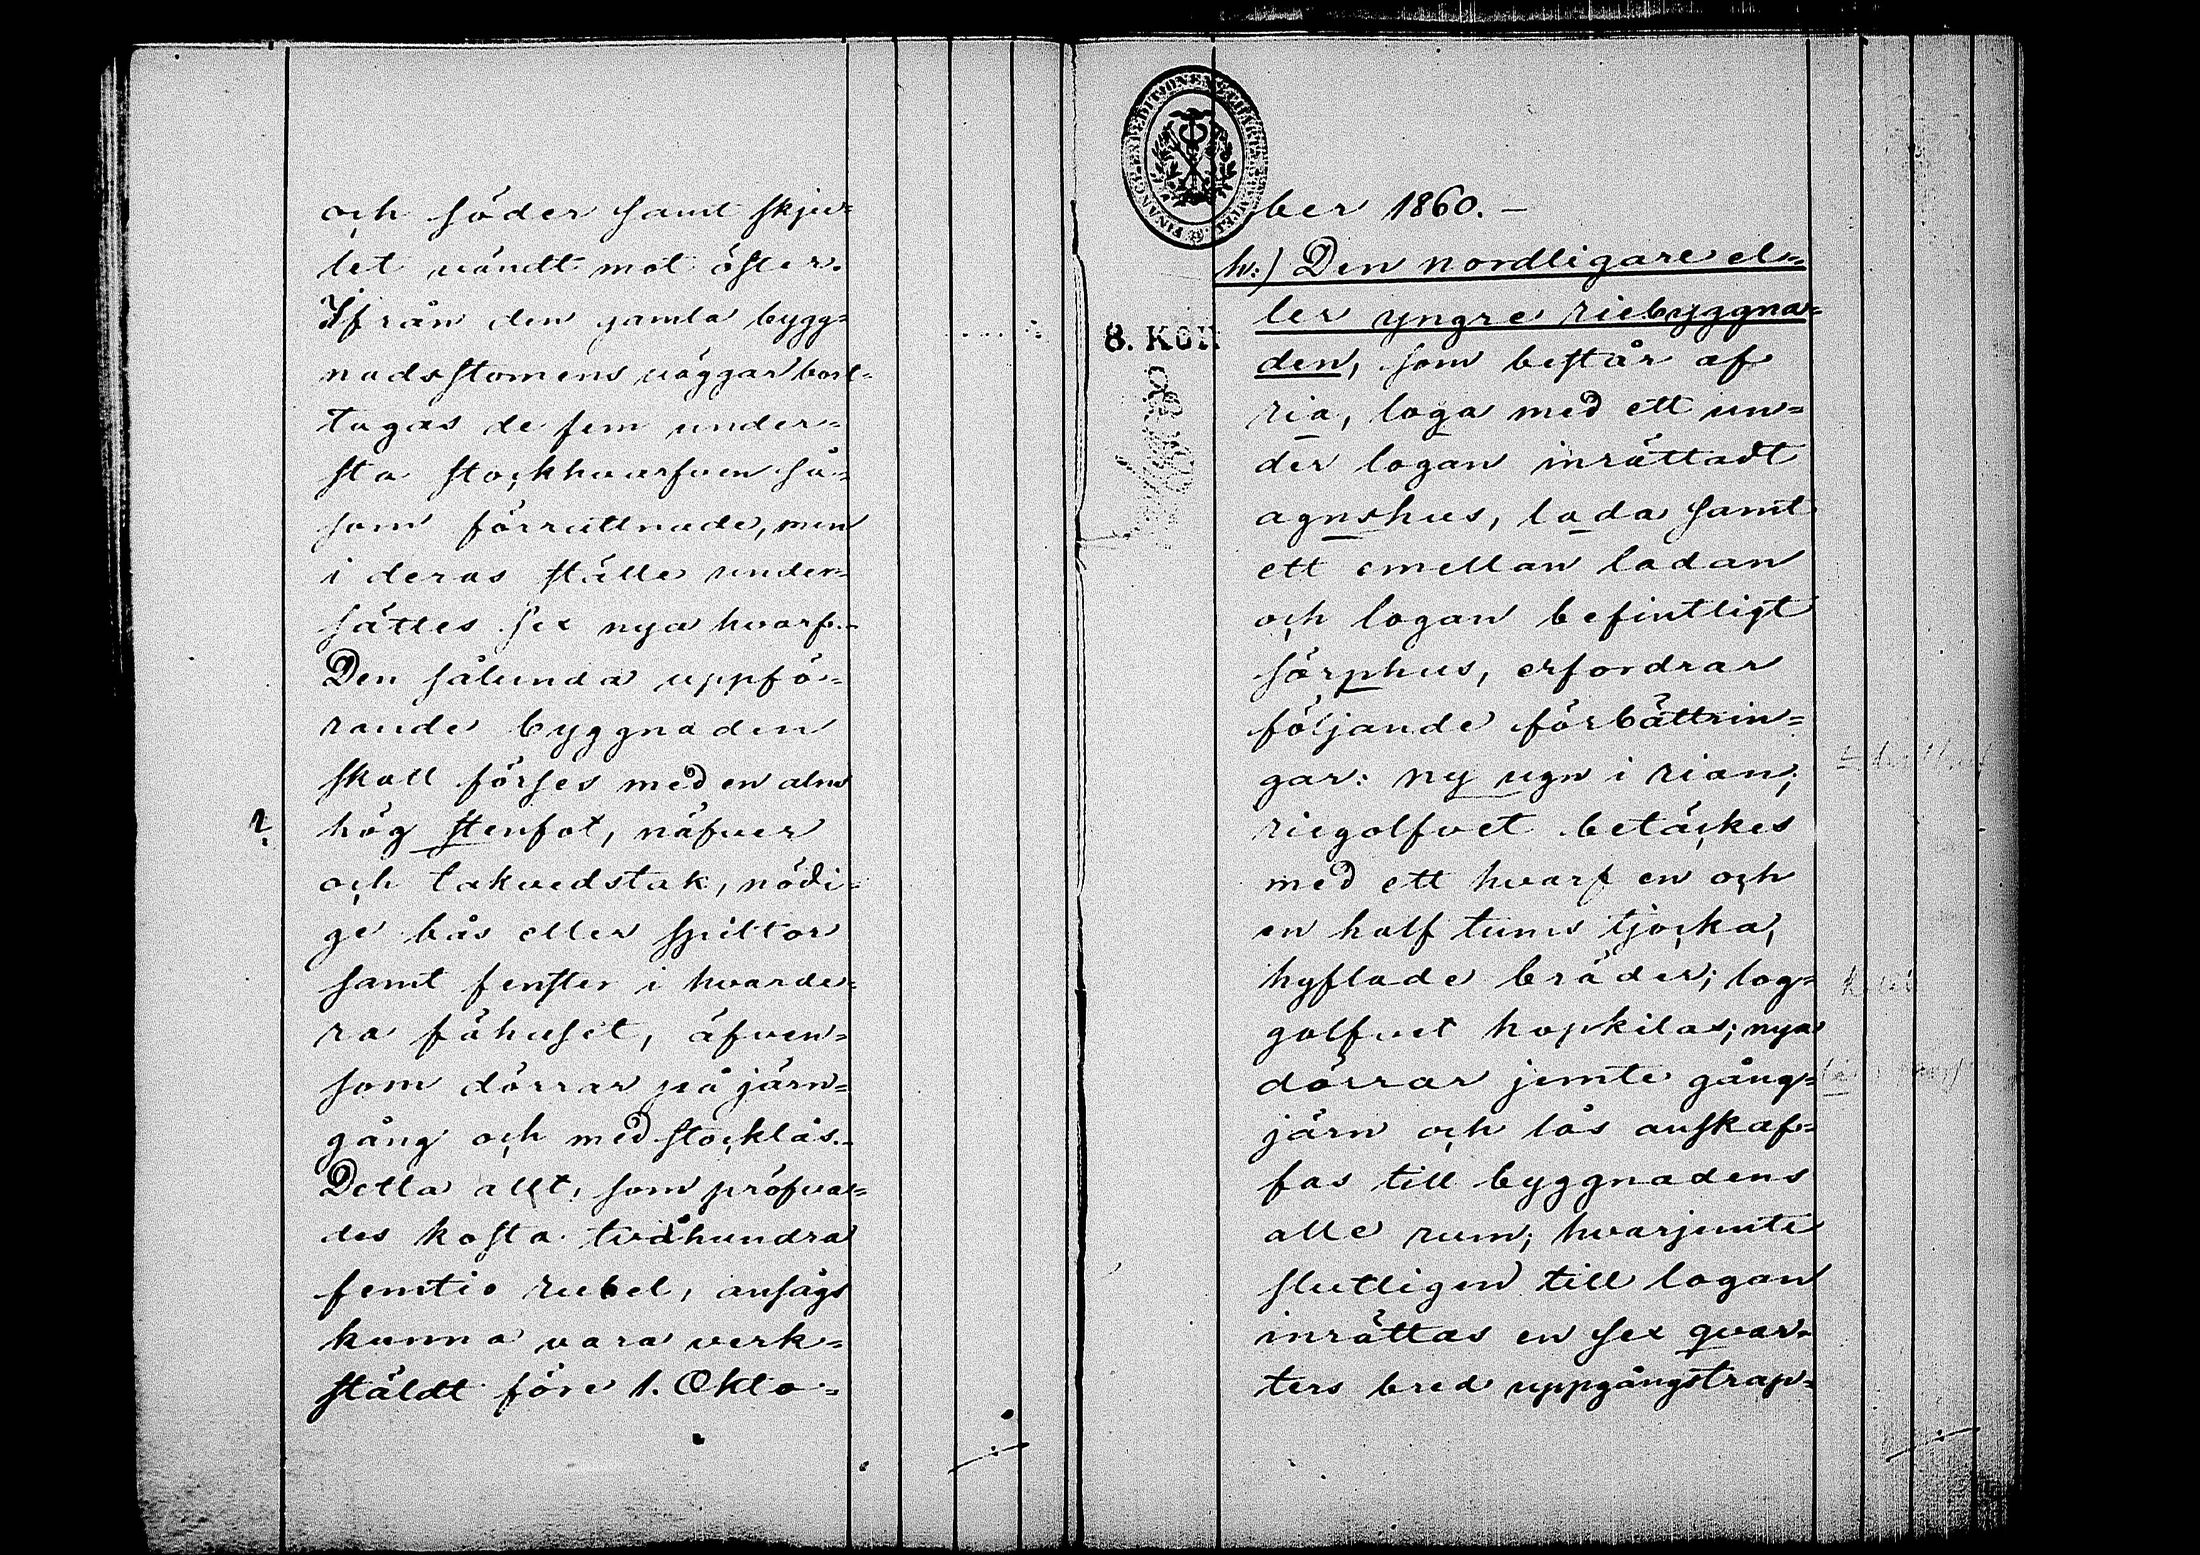 och söder samt skju-
let vändt mot öster.
Ifrån den gamla bygg-
nadsstomens väggar bort-
tagas de fem under-
sta stockhvarfven så-
som förruttnade, men
i deras ställe under-
sättes sex nya hvarf.-
Den sålunda uppfö-
rande byggnaden
skall förses med en alns
hög stenfot, näfver
och takvedstak, nödi-
ge bås eller spiltor
samt fenster i hvarde-
ra fähuset, äfven-
som dörrar på järn-
gång och med stocklås.-
Detta allt, som pröfva-
des kosta tvåhundra
femtio rubel, ansågs
kunna vara verk-
stäldt före 1. Okto-
ber 1860. -
h:) Den nordligare el-
ler yngre riebyggna-
8. KOH
den, som består af
ria, loga med ett un-
der logan inrättadt
agnshus, lada samt
ett emellan ladan
och logan befintligt
sörphus, erfordrar
följande förbättrin-
gar: ny ugn i rian;
riegolfvet betäckes
med ett hvarf en och
en half tums tjocka,
hyflade bräder; log-
golfvet hopkilas; nya
dörrar jemte gång-
järn och lås anskaf-
fas till byggnadens
alle rum; hvarjemte
slutligen till logan
inrättas en sex qvar-
ters bred uppgångstrap-